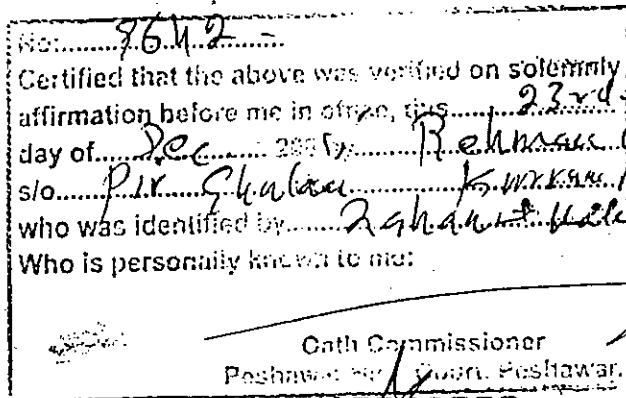 No:........9642-
Certified that the above was verified on solemnly
affirmation before me in office, this..........23rd
day of.....Dec........... 200 by.......Rehman
s/o.....Pir Ghulam
who was identified by........
Who is personally known to me:
Oath Commissioner
Peshawar High Court, Peshawar.